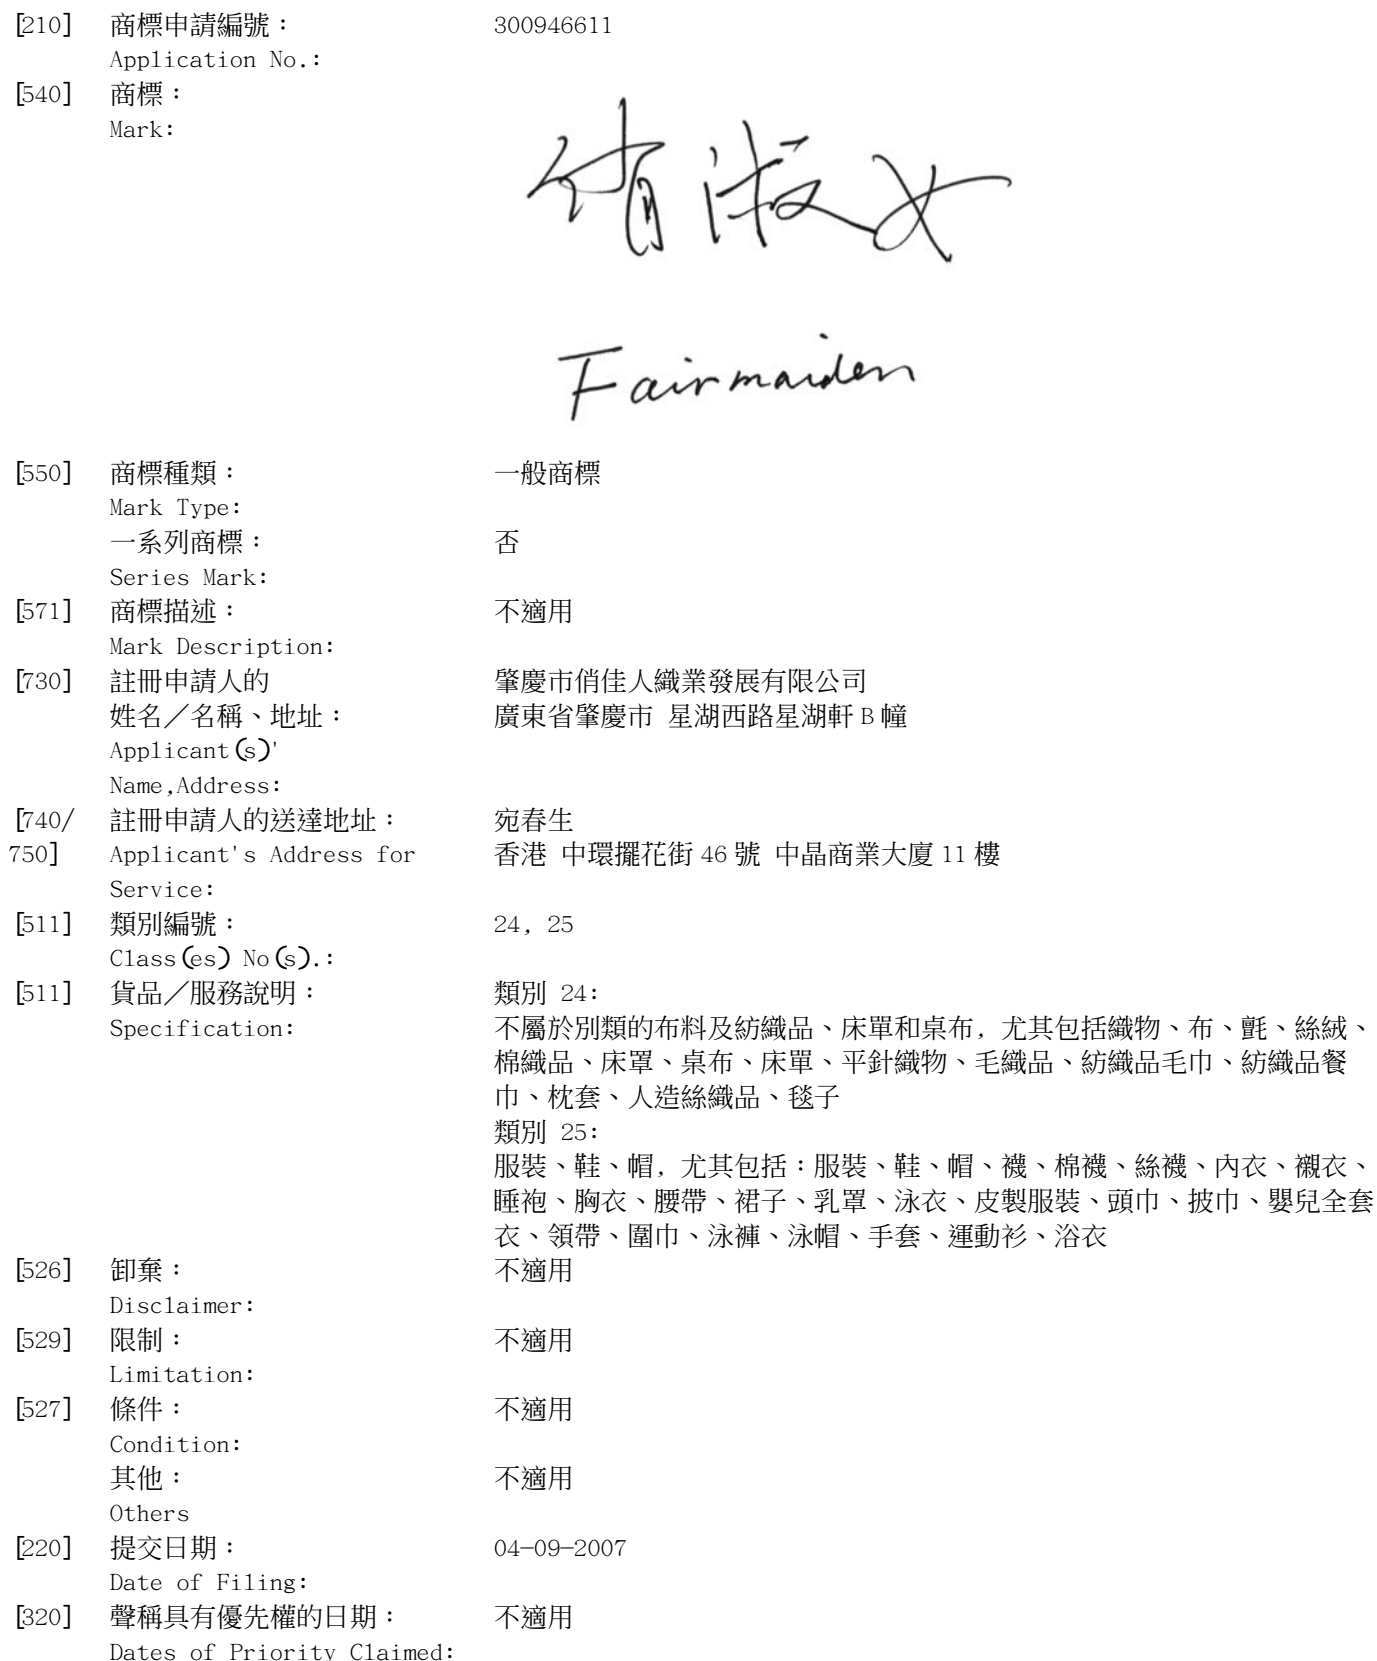 [210] 商標申請編號： 300946611
Application No.:
[540] 商標：
Mark:
俏淑女
Fairmaiden
[550] 商標種類： 一般商標
Mark Type:
一系列商標： 否
Series Mark:
[571] 商標描述： 不適用
Mark Description:
[730] 註冊申請人的 肇慶市俏佳人織業發展有限公司
姓名／名稱、地址： 廣東省肇慶市 星湖西路星湖軒 B 幢
Applicant(s)'
Name,Address:
[740/ 註冊申請人的送達地址： 宛春生
750] Applicant's Address for 香港 中環擺花街 46 號 中晶商業大廈 11 樓
Service:
[511] 類別編號： 24, 25
Class(es) No(s).:
[511] 貨品／服務說明： 類別 24:
Specification: 不屬於別類的布料及紡織品、床單和桌布, 尤其包括織物、布、氈、絲絨、
棉織品、床罩、桌布、床單、平針織物、毛織品、紡織品毛巾、紡織品餐
巾、枕套、人造絲織品、毯子
類別 25:
服裝、鞋、帽, 尤其包括：服裝、鞋、帽、襪、棉襪、絲襪、內衣、襯衣、
睡袍、胸衣、腰帶、裙子、乳罩、泳衣、皮製服裝、頭巾、披巾、嬰兒全套
衣、領帶、圍巾、泳褲、泳帽、手套、運動衫、浴衣
[526] 卸棄： 不適用
Disclaimer:
[529] 限制： 不適用
Limitation:
[527] 條件： 不適用
Condition:
其他： 不適用
Others
[220] 提交日期： 04-09-2007
Date of Filing:
[320] 聲稱具有優先權的日期： 不適用
Dates of Priority Claimed: